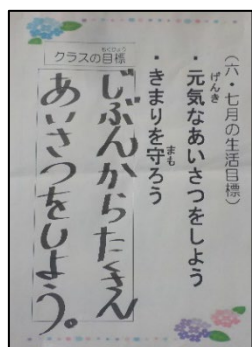 （六・七月の生活目標）
・元気なあいさつをしよう
・きまりを守ろう
クラスの目標
じぶんからたくさん
あいさつをしよう。